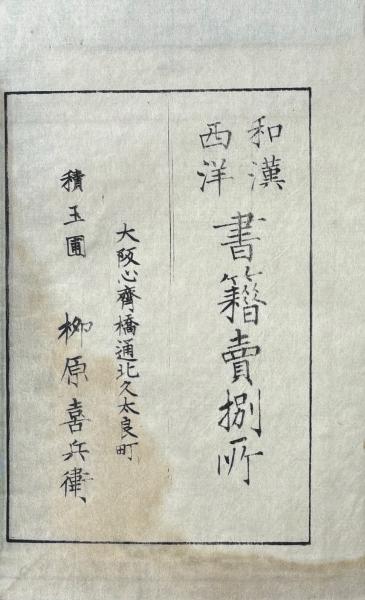 和漢
西洋
書籍賣捌所
大阪心齊橋通北久太良町
積玉圃
柳原喜兵衛